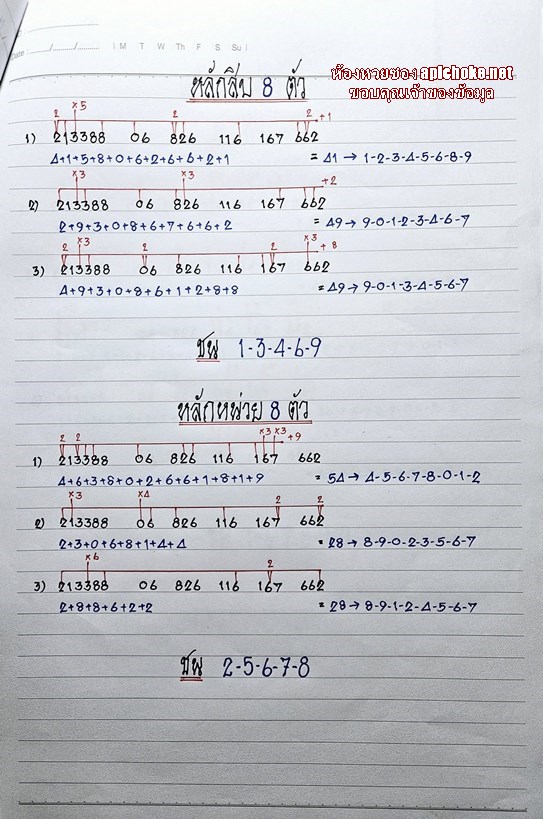 Date : ....../....../......  | M T W Th F S Su |
ห้องหวยซอง aplchoke.net
ขอบคุณเจ้าของข้อมูล
หลักสิบ 8 ตัว
2 x5 2 2 +1
1) 213388 06 826 116 167 662
4+1+5+8+0+6+2+6+6+2+1 = 41 → 1-2-3-4-5-6-8-9
x3 x3 +2
2) 213388 06 826 116 167 662
2+9+3+0+8+6+7+6+6+2 = 49 → 9-0-1-2-3-4-6-7
2 x3 2 2 x3 + 8
3) 213388 06 826 116 167 662
4+9+3+0+8+6+1+2+8+8 = 49 → 9-0-1-3-4-5-6-7
ชน 1-3-4-6-9
หลักหน่วย 8 ตัว
2 2 x3 x3 +9
1) 213388 06 826 116 167 662
4+6+3+8+0+2+6+6+1+8+1+9 = 54 → 4-5-6-7-8-0-1-2
x3 x4 2 2
2) 213388 06 826 116 167 662
2+3+0+6+8+1+4+4 = 28 → 8-9-0-2-3-5-6-7
x6 2
3) 213388 06 826 116 167 662
2+8+8+6+2+2 = 28 → 8-9-1-2-4-5-6-7
ชน 2-5-6-7-8